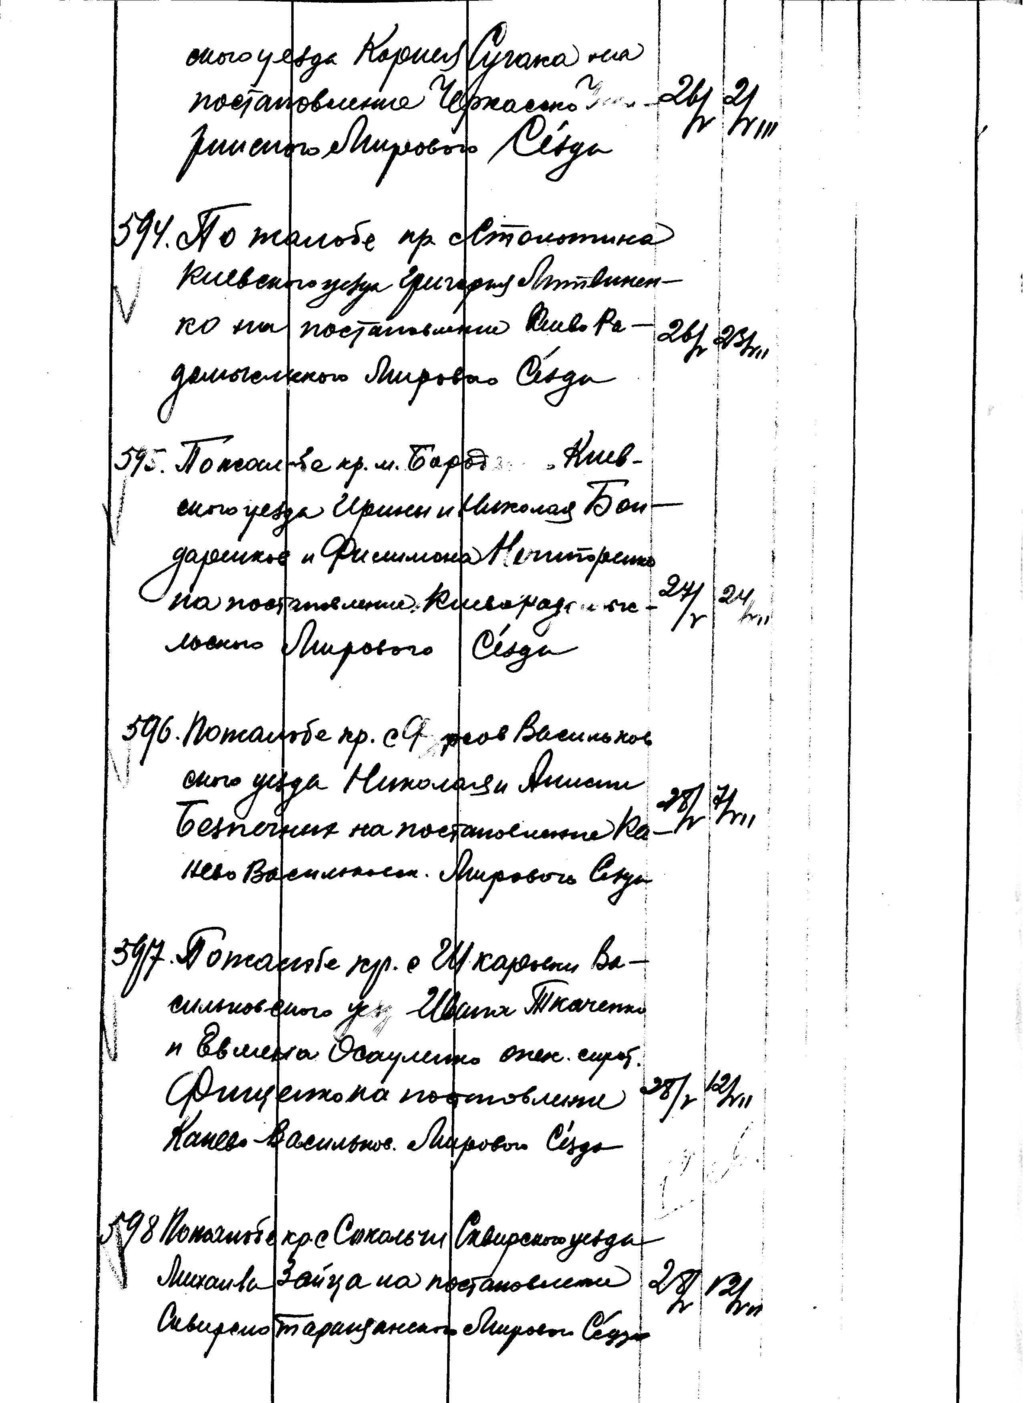 ского уезда Корнея Сугака на
постановление Черкасско
ринского Мирового Сезда 26/V 2/VIII
594. По жалобе кр с Ктолотина
Киевского уезда Григория Литвинен-
ко на постановление Киево Ра- 26/V 23/VII
домысльского Мирового Сезда
595. По жалобе кр. м. Бород Киев-
ского уезда Ирины и Николая Бон-
даренков и Филимона Нечипоренко
на постановление Киеворадомысль- 27/V 24/VII
льского Мирового Сезда
596. По жалобе кр. с Васильков
ского уезда Николая и Анисии
Безпечных на постановление Ка- 28/V 7/VII
нево Васильковск. Мирового Сезда
597. По жалобе кр. с Шкаровки Ва-
сильковского уезд Ивана Ткаченко
и Евмена Осауленко опек. сирот.
Фищенко на постановление 28/V 12/VII
Канево-Васильков. Мирового Сезда
598 По жалобе кр с Сокольчи Сквирского уезда
Михаила Зайца на постановление 28/V 12/VII
Сквирско Таращанского Мирового Сезда